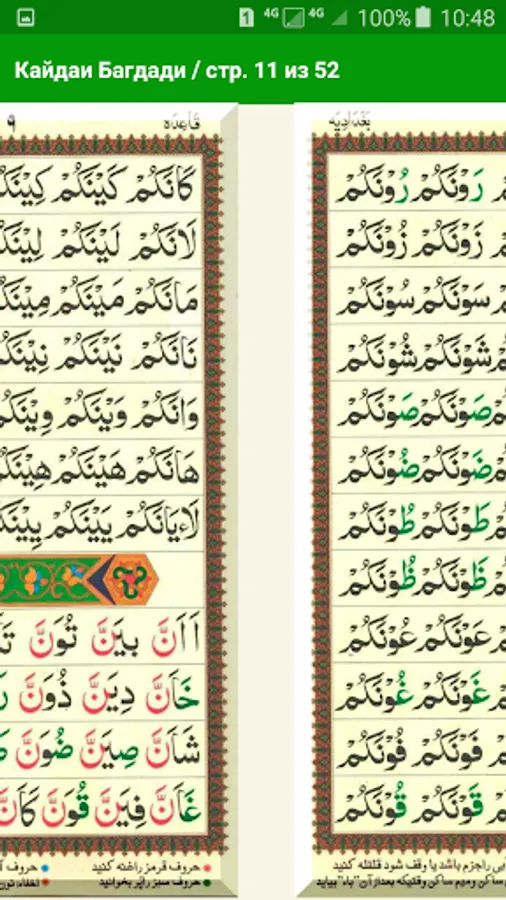 1 4G 4G 100% 10:48
Кайдаи Багдади / стр. 11 из 52
قاعده ۹
كَانَكُمْ كَيْنَكُمْ كِيْنَكُ
لَانَكُمْ لَيْنَكُمْ لِيْنَكُ
مَانَكُمْ مَيْنَكُمْ مِيْنَكُ
نَانَكُمْ نَيْنَكُمْ نِيْنَكُ
وَانَكُمْ وَيْنَكُمْ وِيْنَكُ
هَانَكُمْ هَيْنَكُمْ هِيْنَكُ
لَاءيَانَكُمْ يَيْنَكُمْ يِيْنَكُ
اَاَنَّ بِيَنَّ تُوَنَّ
خَاَنَّ دِيَنَّ ذُوَنَّ
شَاَنَّ صِيَنَّ ضُوَنَّ
غَاَنَّ فِيَنَّ قُوَنَّ كَاَنَّ
حروف قرمز راغنه کنید
حروف سبز را پر بخوانید
حروف
اخفاء نون
بغدادیه
رَوْنَكُمْ رُوْنَكُمْ
زَوْنَكُمْ زُوْنَكُمْ
سَوْنَكُمْ سُوْنَكُمْ
شَوْنَكُمْ شُوْنَكُمْ
صَوْنَكُمْ صَوْنَكُمْ
ضَوْنَكُمْ ضُوْنَكُمْ
طَوْنَكُمْ طُوْنَكُمْ
ظَوْنَكُمْ ظُوْنَكُمْ
عَوْنَكُمْ عُوْنَكُمْ
غَوْنَكُمْ غُوْنَكُمْ
فَوْنَكُمْ فُوْنَكُمْ
قَوْنَكُمْ قُوْنَكُمْ
راجزم باشد یا وقف شود قلقله کنید
ساکن ومیم ساکن وقتیکه بعداز آن "باء" بیاید